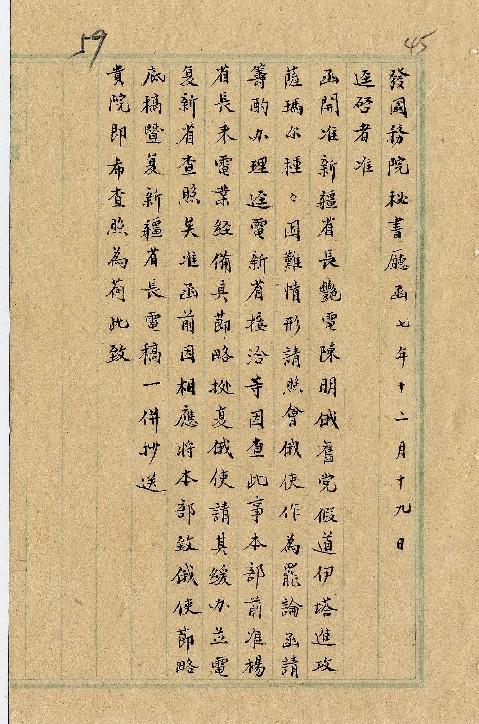 59
45
發國務院秘書廳函 七年十二月十九日
逕啓者准
函開准新疆省長艷電陳明俄舊党假道伊塔進攻
薩瑪尔種々困難情形請照會俄使作為罷論函請
籌酌办理逕電新省接洽等因查此事本部前准楊
省長來電業經備具節略挽复俄使請其緩办並電
复新省查照矣准函前因相應將本部致俄使節略
底稿暨复新疆省長電稿一併抄送
貴院即希查照為荷此致